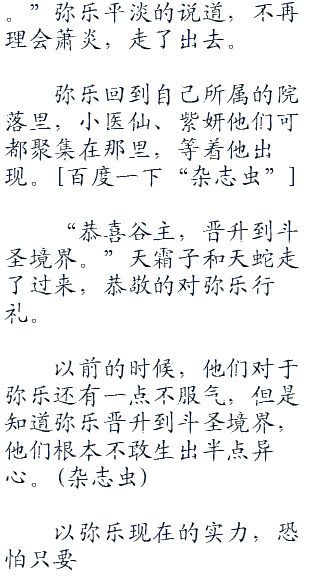 。”弥乐平淡的说道，不再
理会萧炎，走了出去。
弥乐回到自己所属的院
落里，小医仙、紫妍他们可
都聚集在那里，等着他出
现。[百度一下“杂志虫”]
“恭喜谷主，晋升到斗
圣境界。”天霸子和天蛇走
了过来，恭敬的对弥乐行
礼。
以前的时候，他们对于
弥乐还有一点不服气，但是
知道弥乐晋升到斗圣境界，
他们根本不敢生出半点异
心。(杂志虫)
以弥乐现在的实力，恐
怕只要